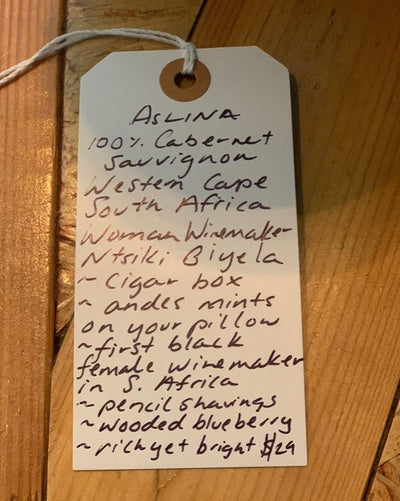 ASLINA
100% Cabernet
Sauvignon
Western Cape
South Africa
Woman Winemaker
Ntsiki Biyela
~ Cigar box
~ andes mints
on your pillow
~ first black
female winemaker
in S. Africa
~ pencil shavings
~ wooded blueberry
~ rich yet bright $29